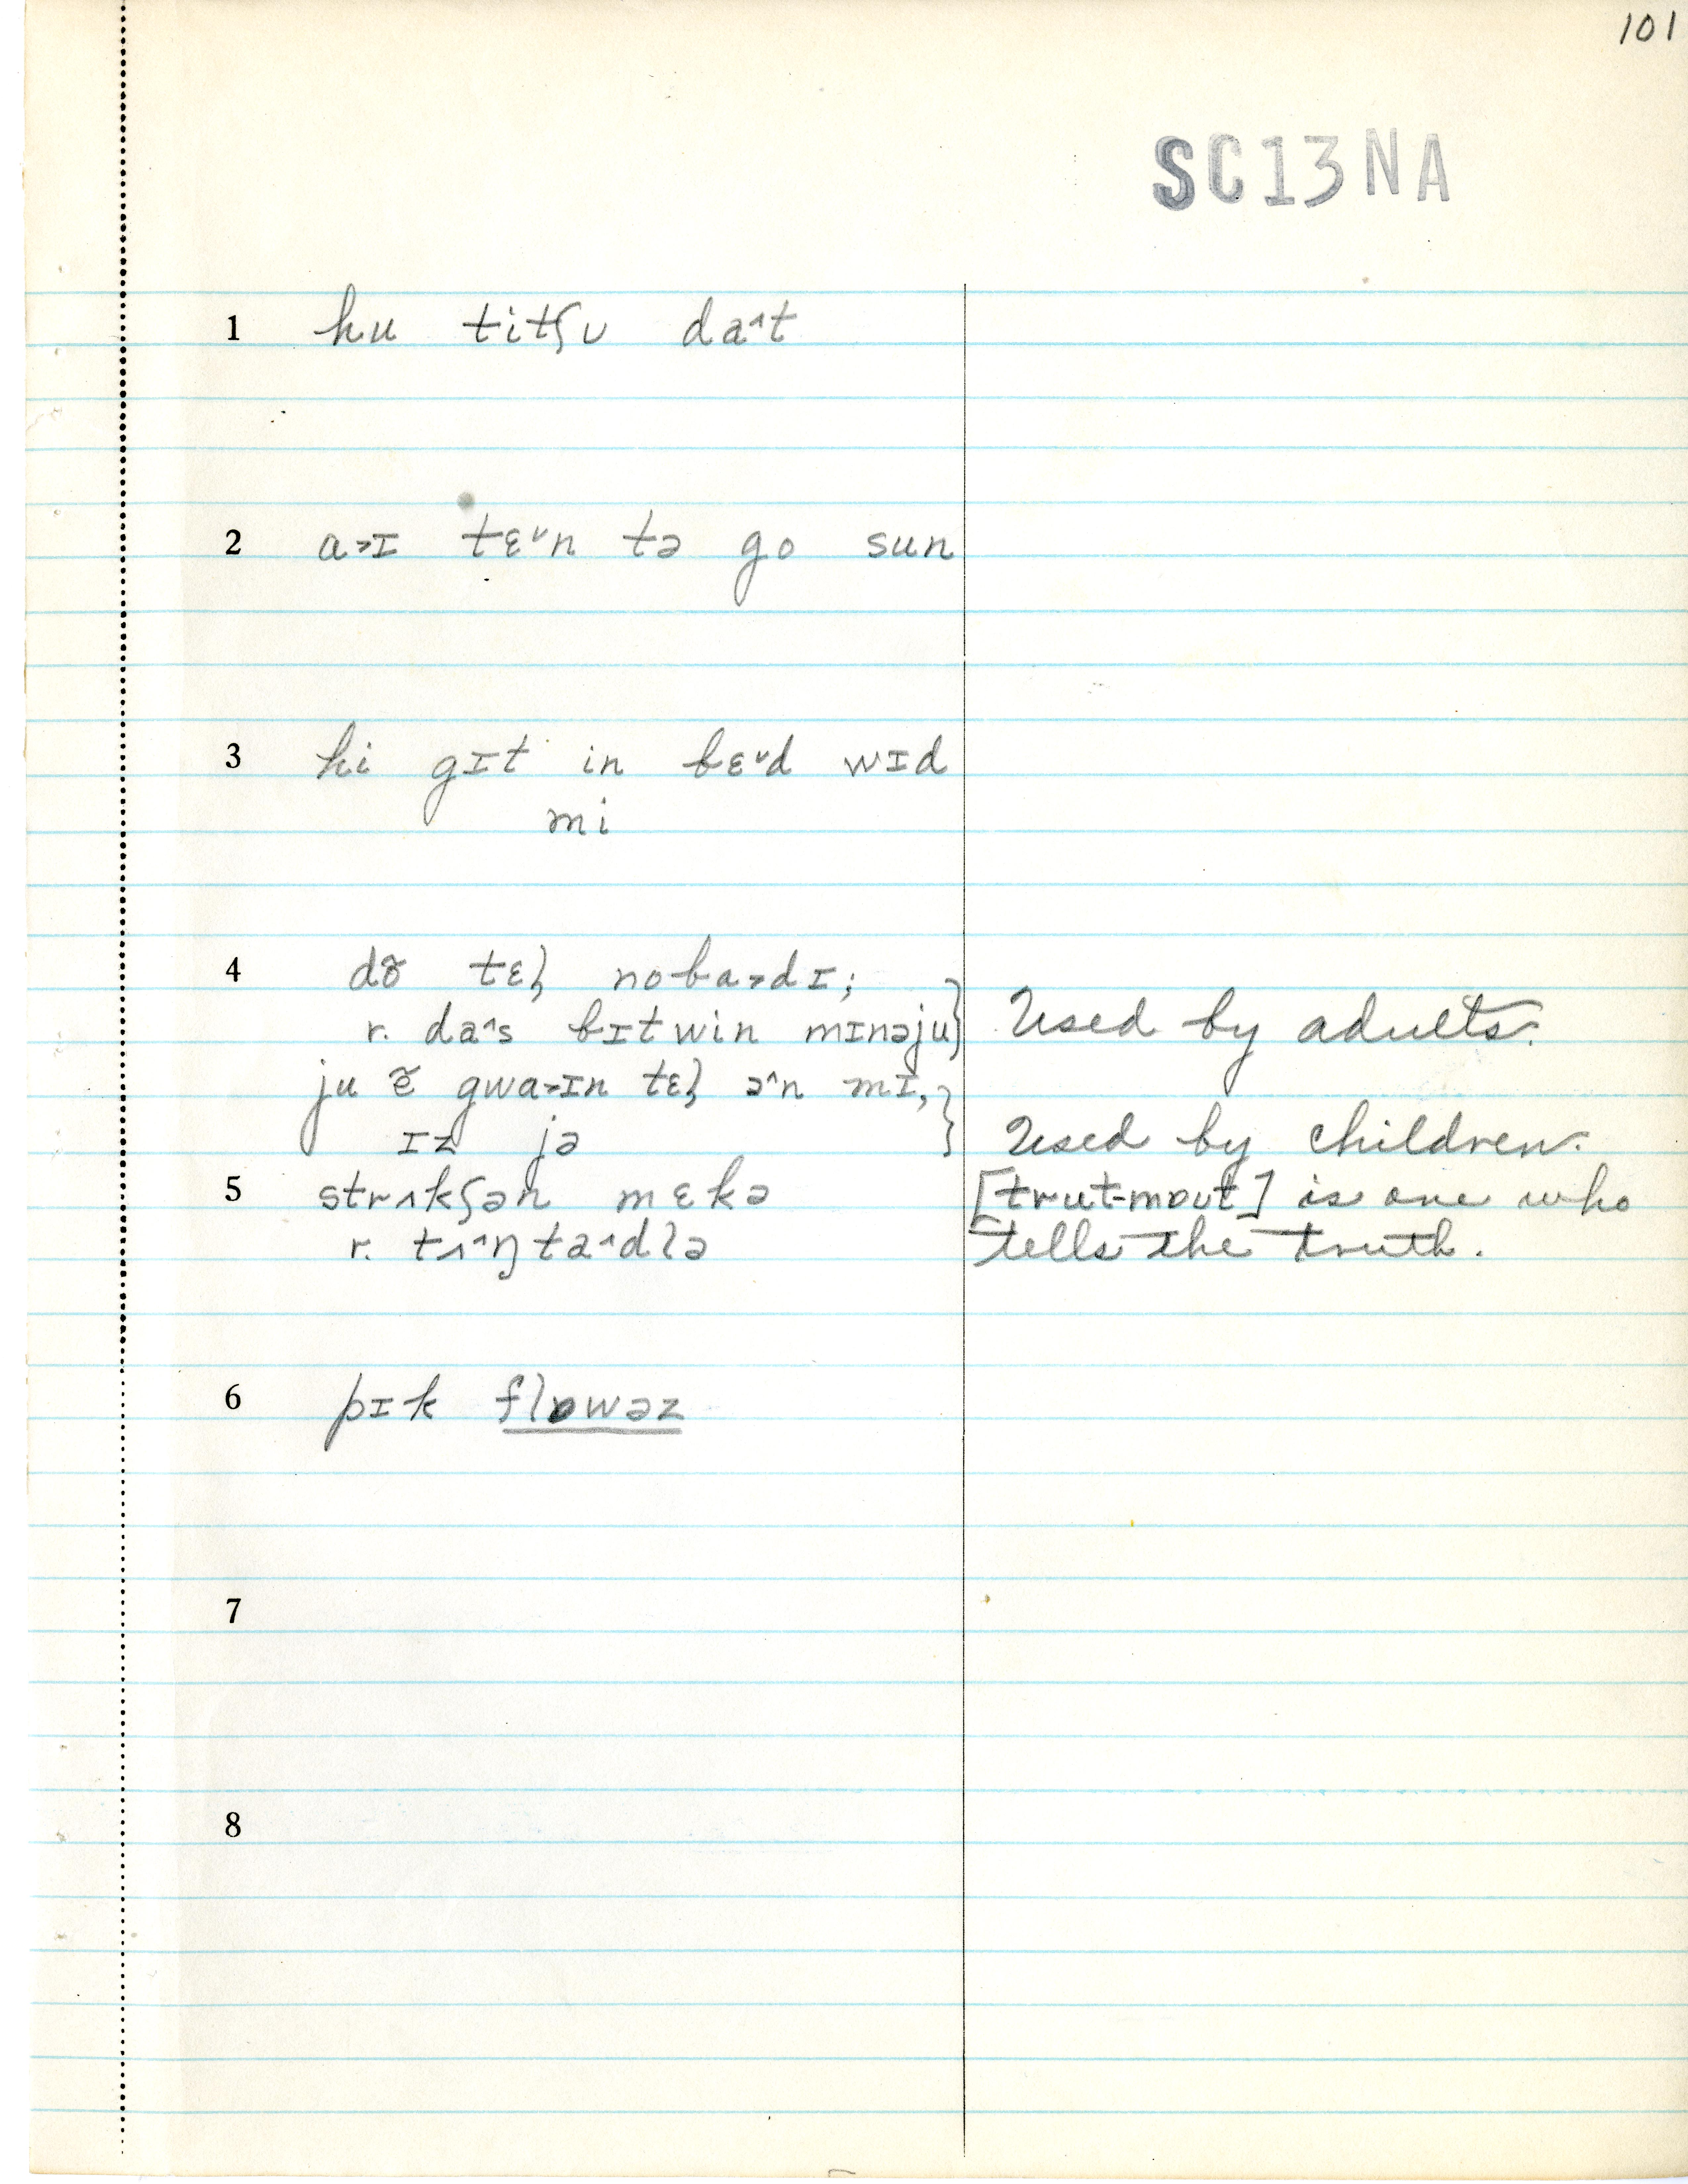 101
SC13NA
1 hu titʃu da˄t
2 a˃ɪ tɛ˅n tə go sun
3 hi gɪt in bɛ˅d wɪd
mi
4 dõ tɛɫ noba˃dɪ;
r. da˄s bɪtwin mɪnəju} Used by adults.
ju ẽ gwa˃ɪn tɛɫ ə˄n mɪ,
ɪz jə } Used by children.
5 strʌkʃən mɛkə [trut-mɒut] is one who
r. tʌ˄ŋ ta˄dlə tells the truth.
6 pɪk flɒwəz
7
8